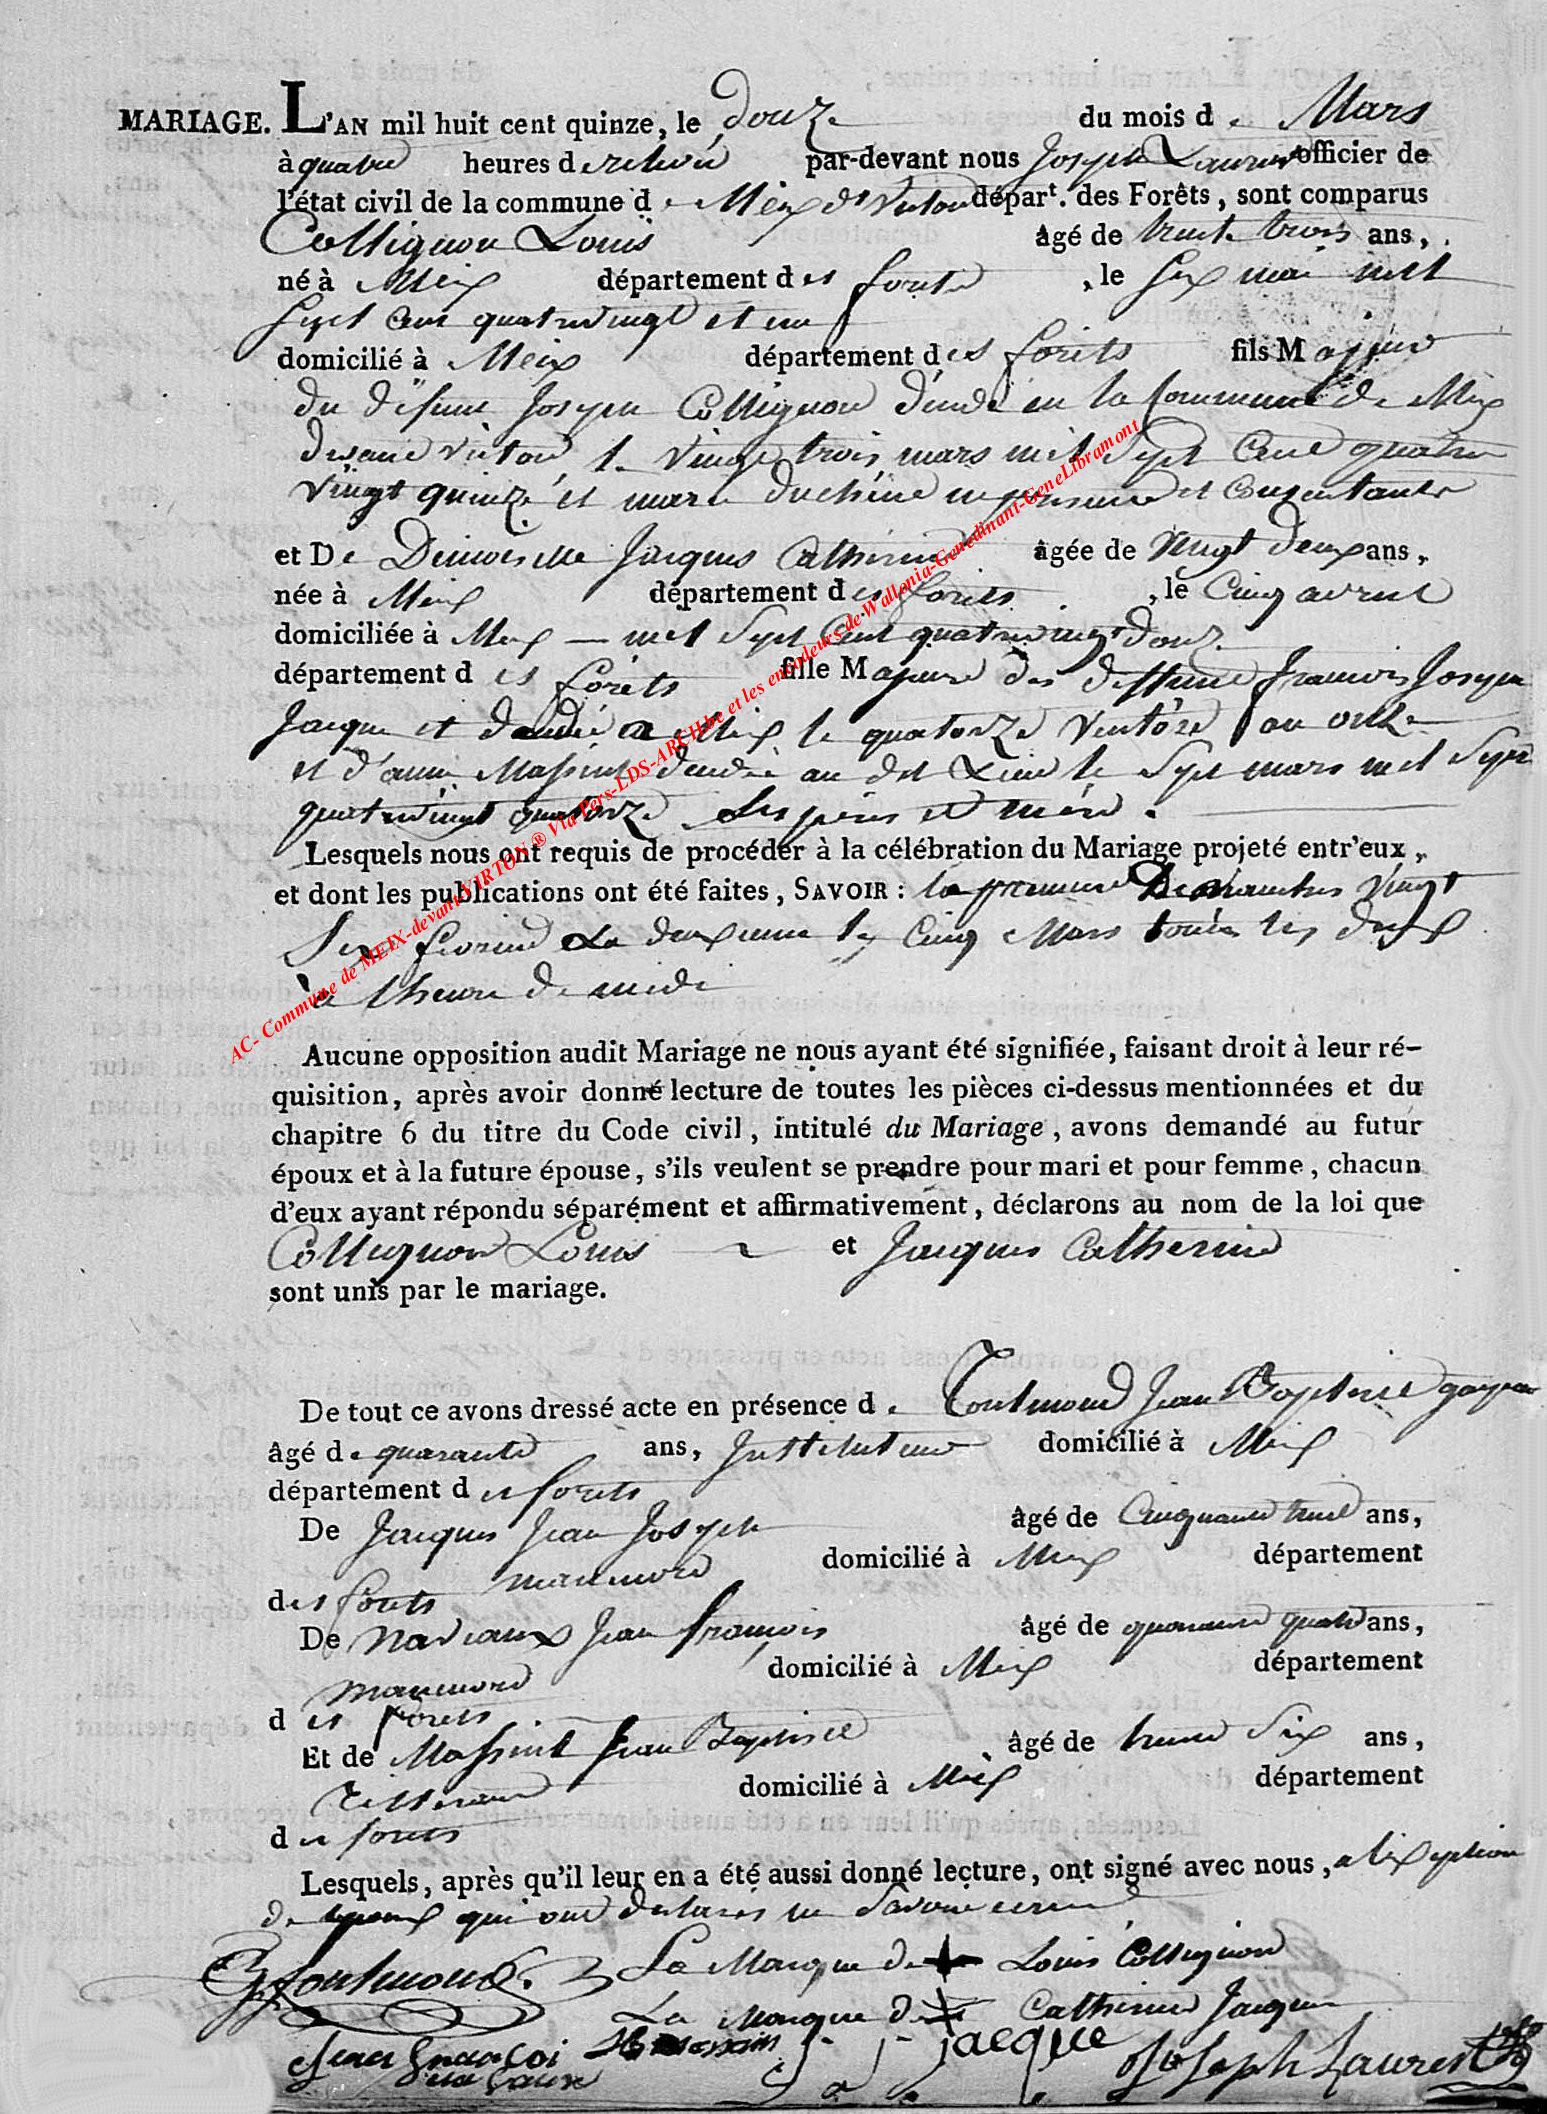 MARIAGE. L'AN mil huit cent quinze, le douze du mois de Mars
à quatre heures de relevée par-devant nous Joseph Laurent officier de
l'état civil de la commune de Meix dt Virton départ. des Forêts, sont comparus
Collignon Louis âgé de trente trois ans,
né à Meix département des forets, le six mai mil
sept cent quatrevingt et un
domicilié à Meix département des forêts fils Majeur
du défunt Joseph Collignon décédé en la commune de Meix
devant virton le vingt trois mars mil sept cent quatre
vingt quinze et marie duchêne ici présente et consentante
et De Demoiselle Jacques Catherine âgée de vingt deux ans,
née à Meix département des forêts, le cinq avril
domiciliée à Meix — mil sept cent quatrevingt douze
département des forêts fille Majeure des deffunt francois Joseph
Jacque et décédé a Meix le quatorze Ventôse an onze
et d'anne Massint décédée au dit Lieu le sept mars mil sept
quatrevingt quatorze ses père et mère.
Lesquels nous ont requis de procéder à la célébration du Mariage projeté entr'eux,
et dont les publications ont été faites, SAVOIR : la premiere Dimanches vingt
six fevrier La deuxieme le cinq Mars toutes les deux
à l'heure de midi
Aucune opposition audit Mariage ne nous ayant été signifiée, faisant droit à leur ré-
quisition, après avoir donné lecture de toutes les pièces ci-dessus mentionnées et du
chapitre 6 du titre du Code civil, intitulé du Mariage, avons demandé au futur
époux et à la future épouse, s'ils veulent se prendre pour mari et pour femme, chacun
d'eux ayant répondu séparément et affirmativement, déclarons au nom de la loi que
Collignon Louis et Jacques Catherine
sont unis par le mariage.
De tout ce avons dressé acte en présence de Toulmond Jean Baptiste
âgé de quarante ans, Instituteur domicilié à Meix
département des forets
De Jacques Jean Joseph âgé de cinquante ans,
domicilié à Meix département
des forets
De navaux Jean françois âgé de quarante quatre ans,
domicilié à Meix département
des forets
Et de Massint Jean Baptiste âgé de trente six ans,
Tisserand domicilié à Meix département
des forets
Lesquels, après qu'il leur en a été aussi donné lecture, ont signé avec nous, a lexeption
de epoux qui ont declarés ne savoir ecrire
La Marque de + Louis Collignon
La Marque de + Catherine Jacques
jacque
Jean françoi navaux
Joseph Laurent
AC- Commune de MEIX-devant-VIRTON ® Via Pers-LDS-ARCH.be et les encodeurs de Wallonia-Genedinant-GeneLibramont